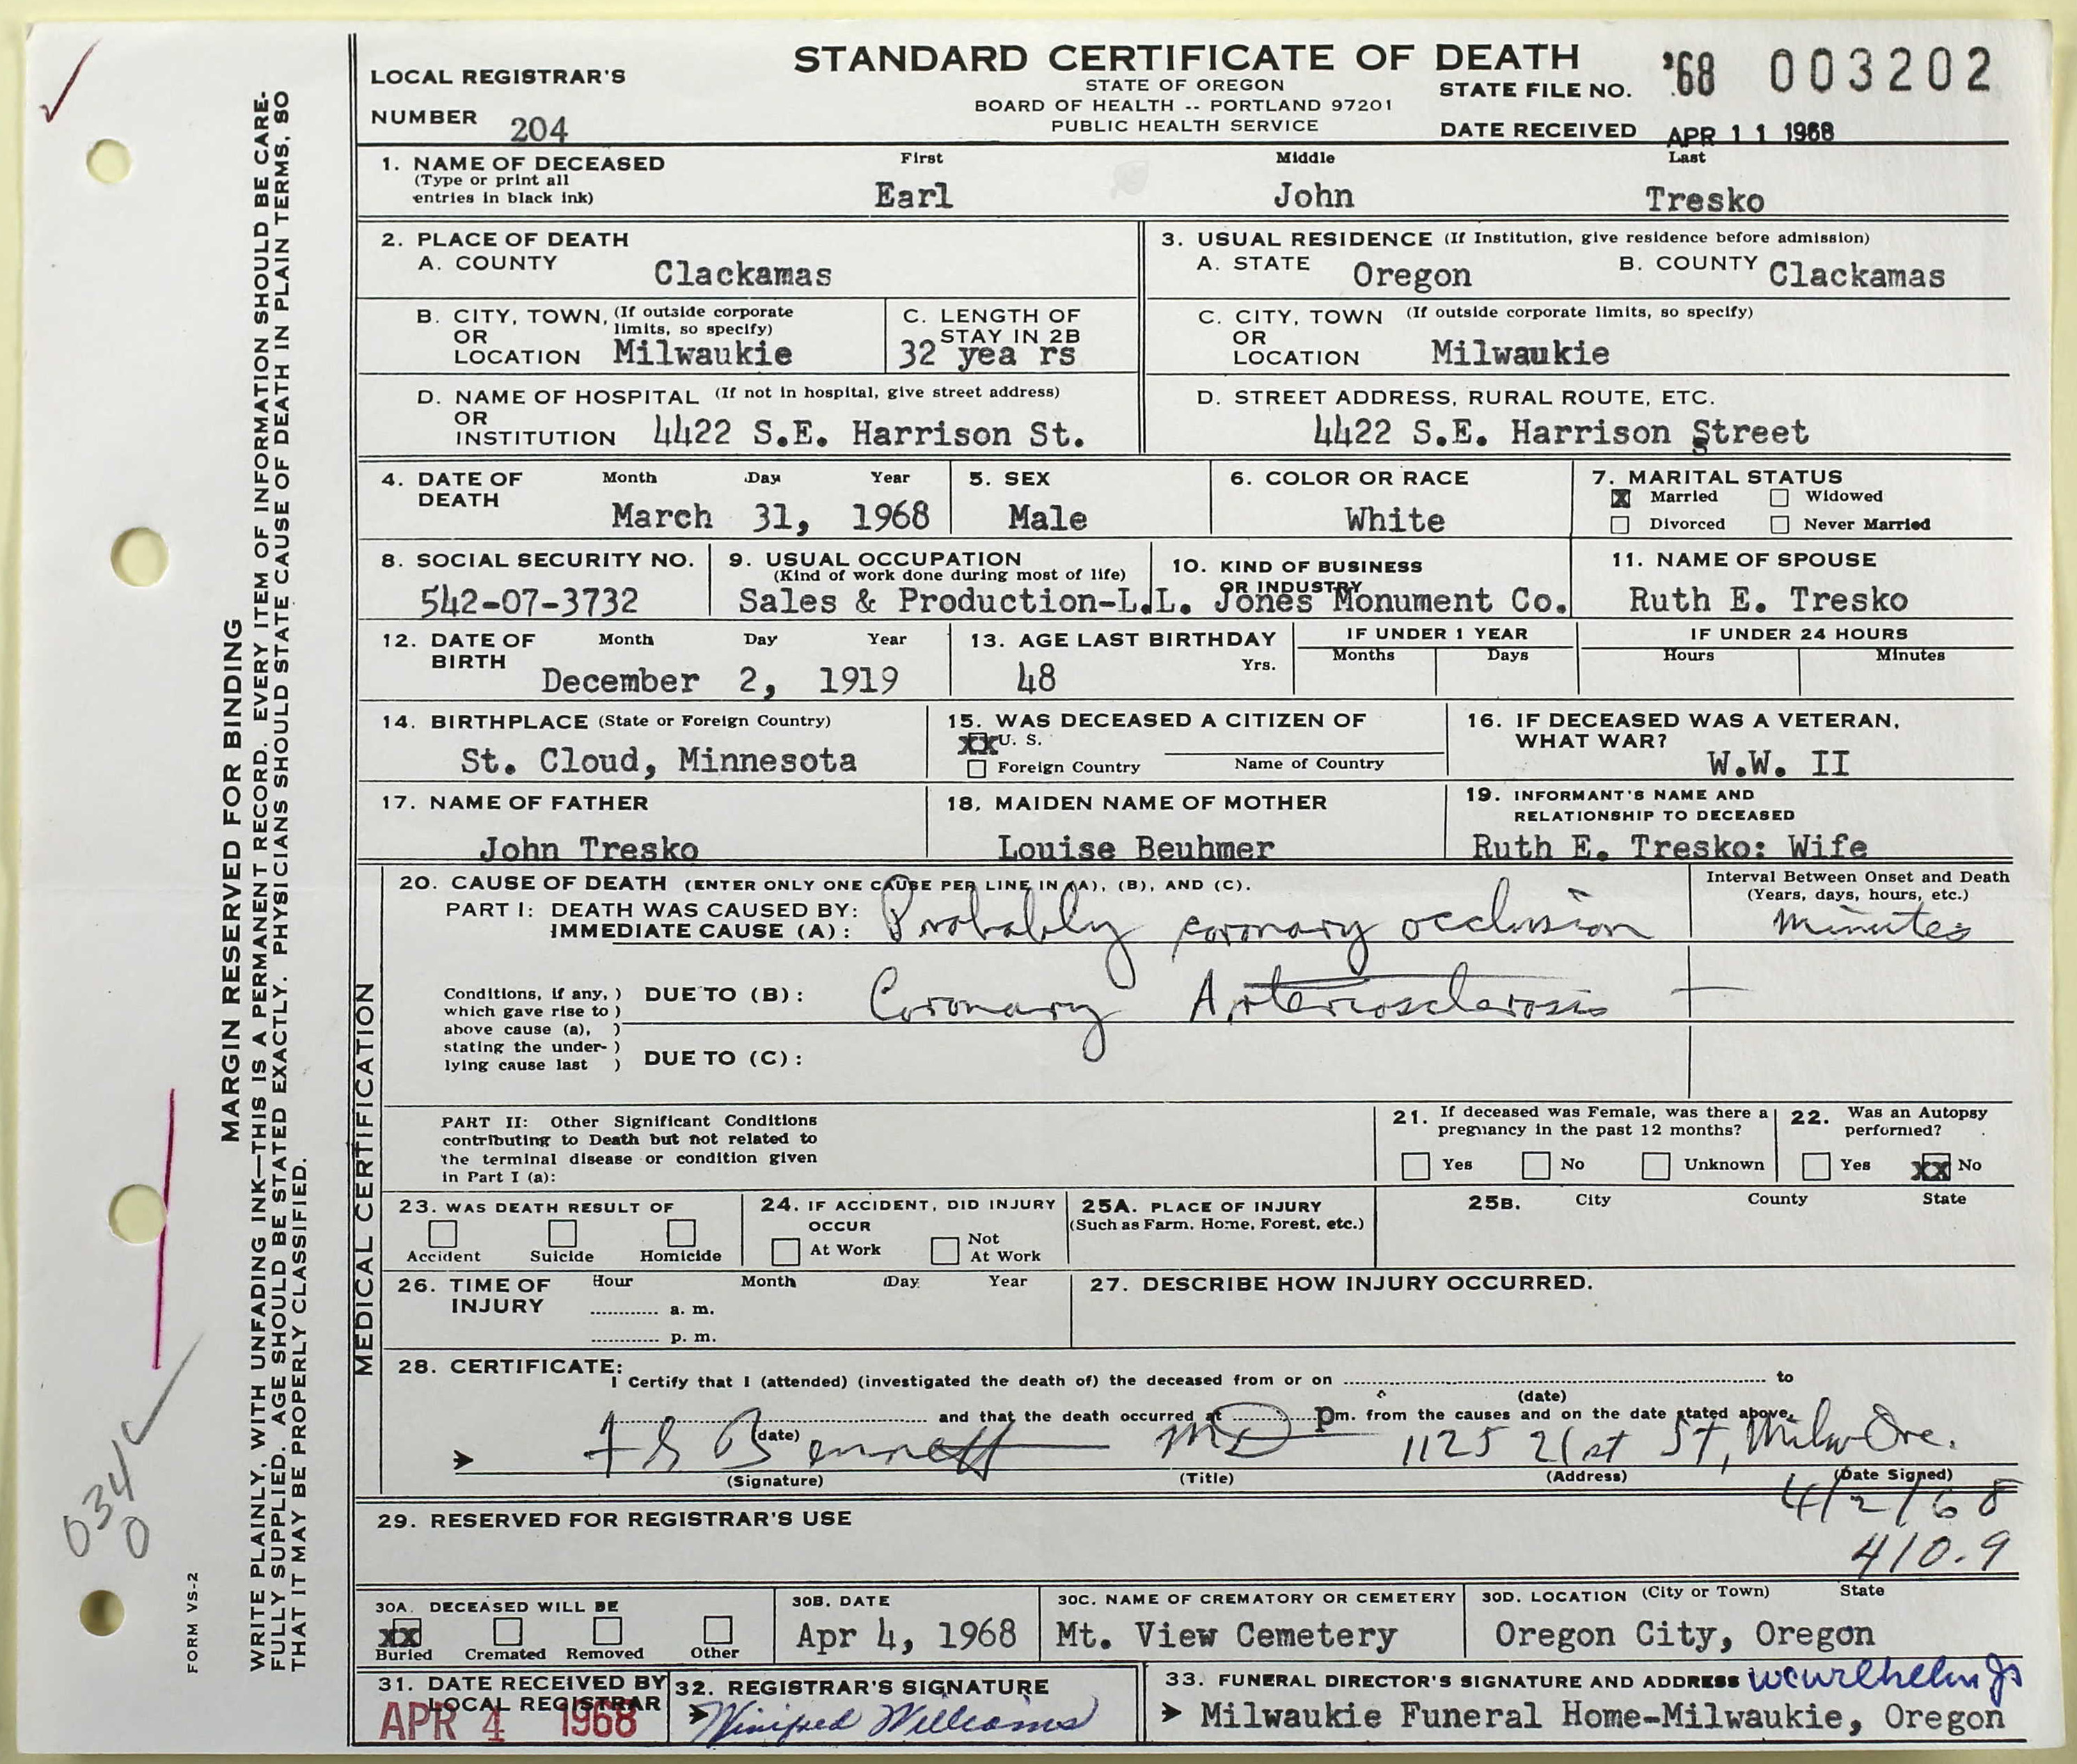 STANDARD CERTIFICATE OF DEATH
STATE OF OREGON
BOARD OF HEALTH -- PORTLAND 97201
PUBLIC HEALTH SERVICE
LOCAL REGISTRAR'S
NUMBER 204
STATE FILE NO. '68 003202
DATE RECEIVED APR 11 1968
1. NAME OF DECEASED
(Type or print all
entries in black ink)
First Middle Last
Earl John Tresko
2. PLACE OF DEATH
A. COUNTY Clackamas
3. USUAL RESIDENCE (If Institution, give residence before admission)
A. STATE Oregon B. COUNTY Clackamas
B. CITY, TOWN, (If outside corporate
OR limits, so specify)
LOCATION Milwaukie
C. LENGTH OF
STAY IN 2B
32 yea rs
C. CITY, TOWN (If outside corporate limits, so specify)
OR
LOCATION Milwaukie
D. NAME OF HOSPITAL (If not in hospital, give street address)
OR
INSTITUTION 4422 S.E. Harrison St.
D. STREET ADDRESS, RURAL ROUTE, ETC.
4422 S.E. Harrison Street
4. DATE OF Month Day Year
DEATH
March 31, 1968
5. SEX
Male
6. COLOR OR RACE
White
7. MARITAL STATUS
X Married Widowed
Divorced Never Married
8. SOCIAL SECURITY NO.
542-07-3732
9. USUAL OCCUPATION
(Kind of work done during most of life)
10. KIND OF BUSINESS
OR INDUSTRY
Sales & Production-L.L. Jones Monument Co.
11. NAME OF SPOUSE
Ruth E. Tresko
12. DATE OF Month Day Year
BIRTH
December 2, 1919
13. AGE LAST BIRTHDAY
48 Yrs.
IF UNDER 1 YEAR
Months Days
IF UNDER 24 HOURS
Hours Minutes
14. BIRTHPLACE (State or Foreign Country)
St. Cloud, Minnesota
15. WAS DECEASED A CITIZEN OF
XX U. S.
Foreign Country Name of Country
16. IF DECEASED WAS A VETERAN,
WHAT WAR?
W.W. II
17. NAME OF FATHER
John Tresko
18. MAIDEN NAME OF MOTHER
Louise Beuhmer
19. INFORMANT'S NAME AND
RELATIONSHIP TO DECEASED
Ruth E. Tresko: Wife
MEDICAL CERTIFICATION
20. CAUSE OF DEATH (ENTER ONLY ONE CAUSE PER LINE IN (A), (B), AND (C).
PART I: DEATH WAS CAUSED BY:
IMMEDIATE CAUSE (A): Probably coronary occlusion
Interval Between Onset and Death
(Years, days, hours, etc.)
minutes
Conditions, if any, )
which gave rise to )
above cause (a), )
stating the under- )
lying cause last )
DUE TO (B): Coronary Arteriosclerosis +
DUE TO (C):
PART II: Other Significant Conditions
contributing to Death but not related to
the terminal disease or condition given
in Part I (a):
21. If deceased was Female, was there a
pregnancy in the past 12 months?
Yes No Unknown
22. Was an Autopsy
performed?
Yes XX No
23. WAS DEATH RESULT OF
Accident Suicide Homicide
24. IF ACCIDENT, DID INJURY
OCCUR
At Work Not
At Work
25A. PLACE OF INJURY
(Such as Farm, Home, Forest, etc.)
25B. City County State
26. TIME OF Hour Month Day Year
INJURY
............ a. m.
............ p. m.
27. DESCRIBE HOW INJURY OCCURRED.
28. CERTIFICATE:
I Certify that I (attended) (investigated the death of) the deceased from or on ........ to
(date)
........ and that the death occurred at ........ pm. from the causes and on the date stated above.
(date)
F S Bennett MD 1125 21st St, Milw Ore.
(Signature) (Title) (Address) (Date Signed)
4/2/68
29. RESERVED FOR REGISTRAR'S USE
410.9
30A. DECEASED WILL BE
XX
Buried Cremated Removed Other
30B. DATE
Apr 4, 1968
30C. NAME OF CREMATORY OR CEMETERY
Mt. View Cemetery
30D. LOCATION (City or Town) State
Oregon City, Oregon
31. DATE RECEIVED BY
LOCAL REGISTRAR
APR 4 1968
32. REGISTRAR'S SIGNATURE
Winifred Williams
33. FUNERAL DIRECTOR'S SIGNATURE AND ADDRESS
Milwaukie Funeral Home-Milwaukie, Oregon
MARGIN RESERVED FOR BINDING
WRITE PLAINLY, WITH UNFADING INK—THIS IS A PERMANENT RECORD. EVERY ITEM OF INFORMATION SHOULD BE CARE-
FULLY SUPPLIED. AGE SHOULD BE STATED EXACTLY. PHYSICIANS SHOULD STATE CAUSE OF DEATH IN PLAIN TERMS, SO
THAT IT MAY BE PROPERLY CLASSIFIED.
FORM VS-2
034
0